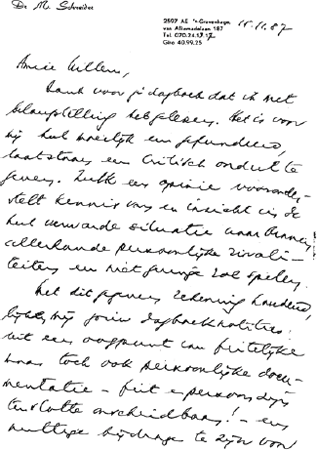 Dr. M. Schneider
2597 AE 's-Gravenhage, 15.11.87
van Alkemadelaan 187
Tel. 070-24.
Giro 40.99.25
Amice Willem,
Dank voor je dagboek dat ik met
belangstelling heb gelezen. Het is voor
mij heel moeilijk een gefundeerd,
laat staan een kritisch oordeel te
geven. Zulk een opinie vooronder-
stelt kennis van en inzicht in de
heel verwarde situatie waarbinnen
allerhande persoonlijke rivali-
teiten een niet geringe rol spelen.
Het dit gegeven rekening houdend,
lijken mij jouw dagboeknotities
uit een oogpunt van feitelijke
maar toch ook persoonlijke docu-
mentatie - feit en persoon zijn
tenslotte onscheidbaar! - een
nuttige bijdrage te zijn voor